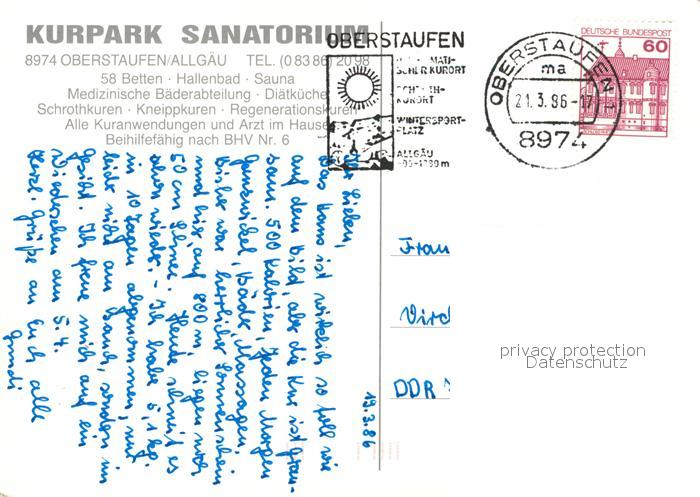 KURPARK SANATORIUM
8974 OBERSTAUFEN/ALLGÄU TEL. (0 83 86) 20 98
58 Betten · Hallenbad · Sauna
Medizinische Bäderabteilung · Diätküche
Schrothkuren · Kneippkuren · Regenerationskuren
Alle Kuranwendungen und Arzt im Hause
Beihilfefähig nach BHV Nr. 6
OBERSTAUFEN
SCHER KURORT
SCHROTH-
KURORT
WINTERSPORT-
PLATZ
ALLGÄU
OBERSTAUFEN
ma
21.3.86-17
8974
DEUTSCHE BUNDESPOST
60
19.3.86
Ihr Lieben,
das Haus ist wirklich so toll wie
auf dem Bild, aber die Kur ist grau-
sam. 500 Kalorien, jeden Morgen
Ganzwickel, Bäder, Massagen.
Bisher war herrlicher Sonnenschein
und hier auf 800 m liegen noch
50 cm Schnee. Heute schneit es
schon wieder. - Ich habe 5,1 kg
in 10 Tagen abgenommen, nur
leider nicht am Bauch, sondern im
Gesicht. Ich freue mich auf ein
Wiedersehen am 5.4.
Herzl. Grüße an Euch alle
Frau
DDR
privacy protection
Datenschutz